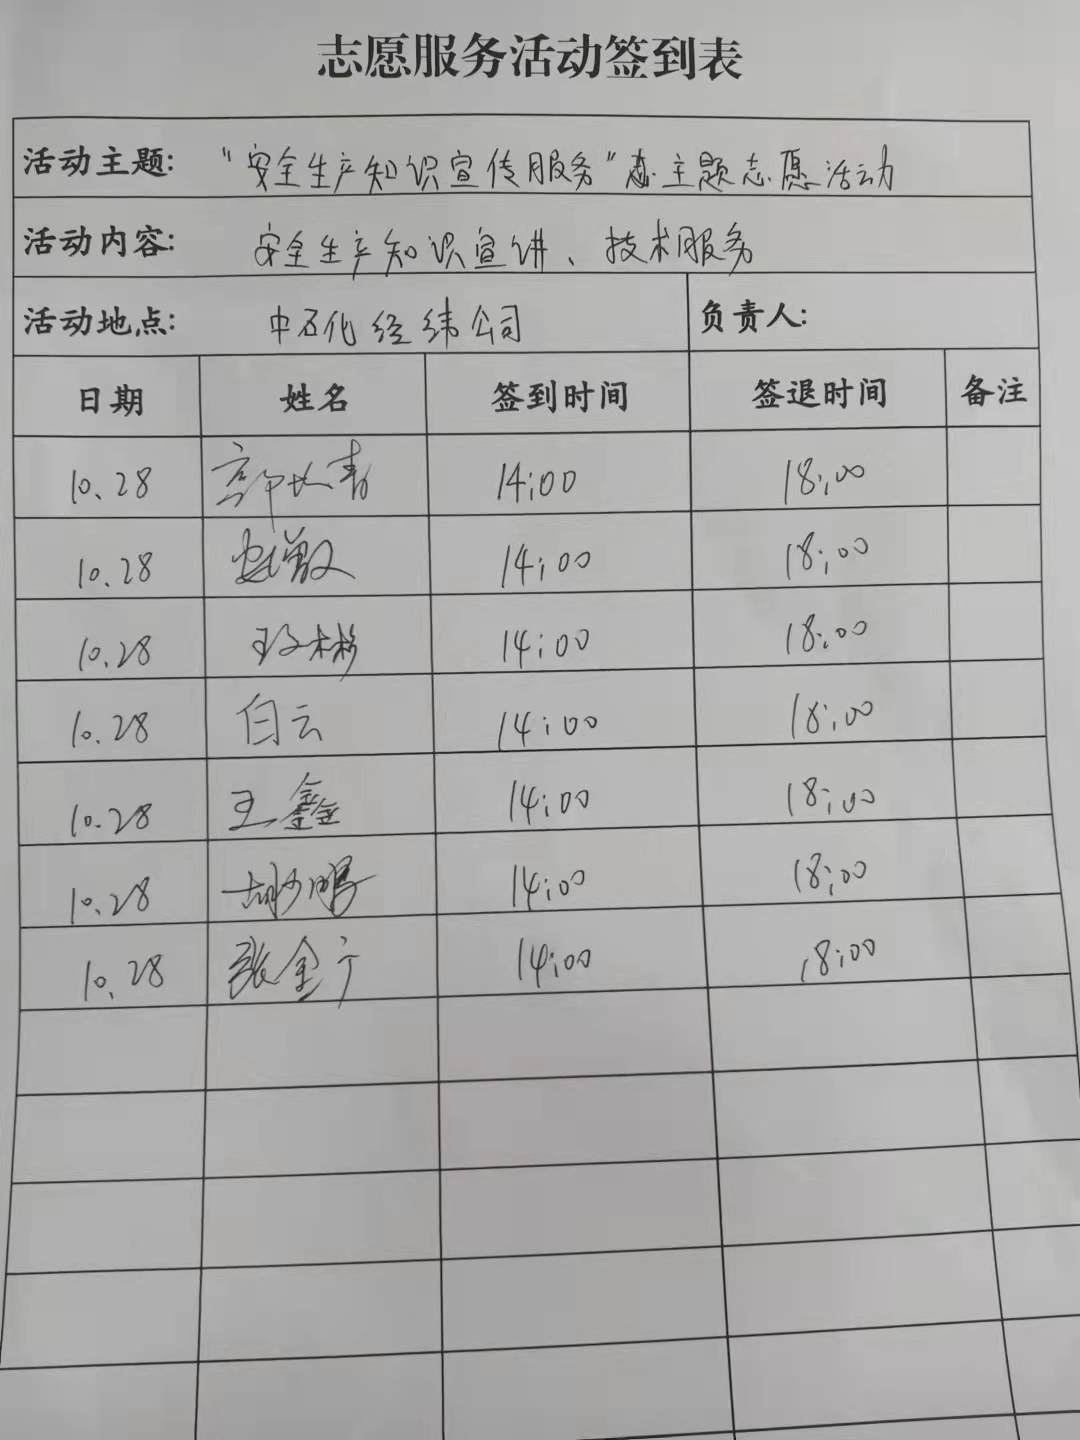 志愿服务活动签到表
活动主题: “安全生产知识宣传服务”主题志愿活动
活动内容: 安全生产知识宣讲、技术服务
活动地点: 中石化经纬公司 负责人:
日期 姓名 签到时间 签退时间 备注
10.28 14:00 18:00
10.28 14:00 18:00
10.28 14:00 18:00
10.28 白云 14:00 18:00
10.28 王鑫 14:00 18:00
10.28 14:00 18:00
10.28 张金宁 14:00 18:00